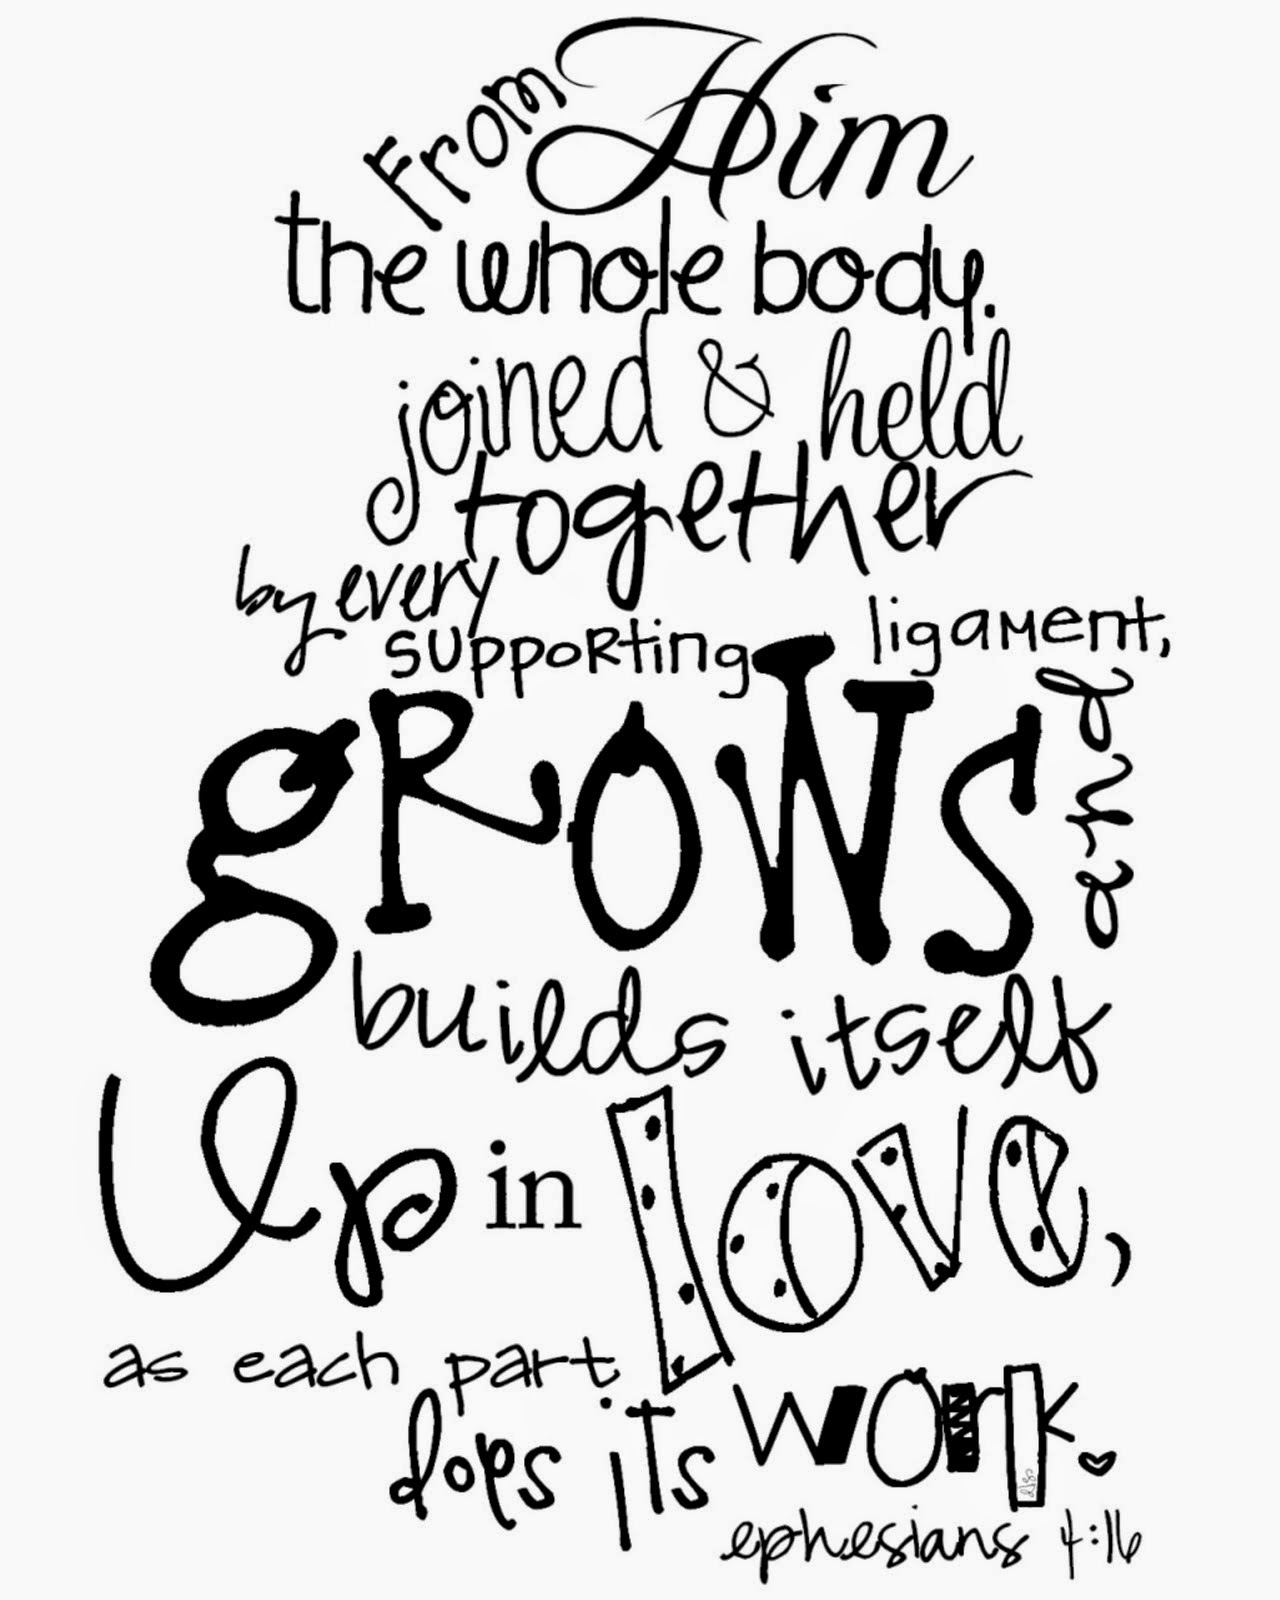 From Him
the whole body.
joined & held
together
by every
supporting ligament,
gRows and
builds itself
Up in love,
as each part
does its work.
ephesians 4:16